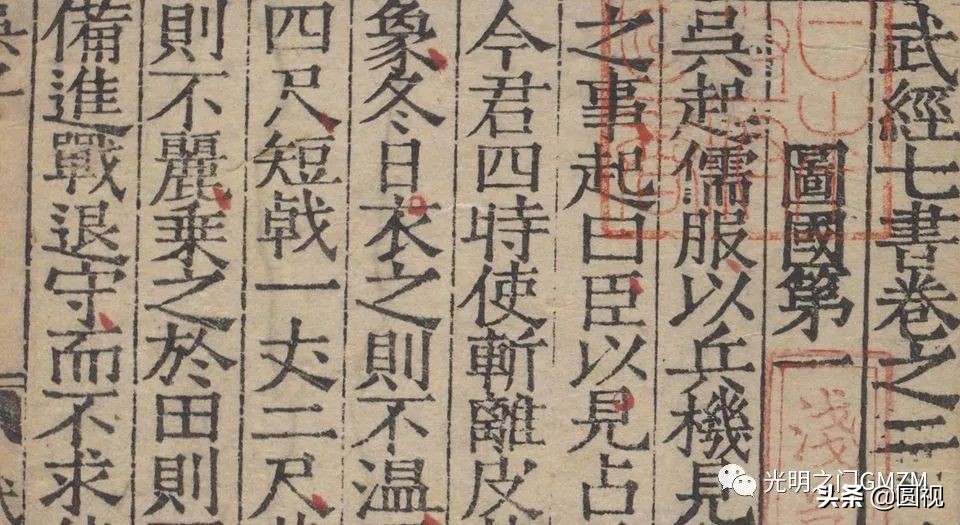 武經七書卷之三
圖國第一
吳起儒服以兵機見
之事起曰臣以見占
今君四時使斬離皮
象冬日衣之則不温
四尺短戟一丈二尺
則不麗乗之於田則
備進戰退守而不求
淺
光明之门GMZM
头条@圆视